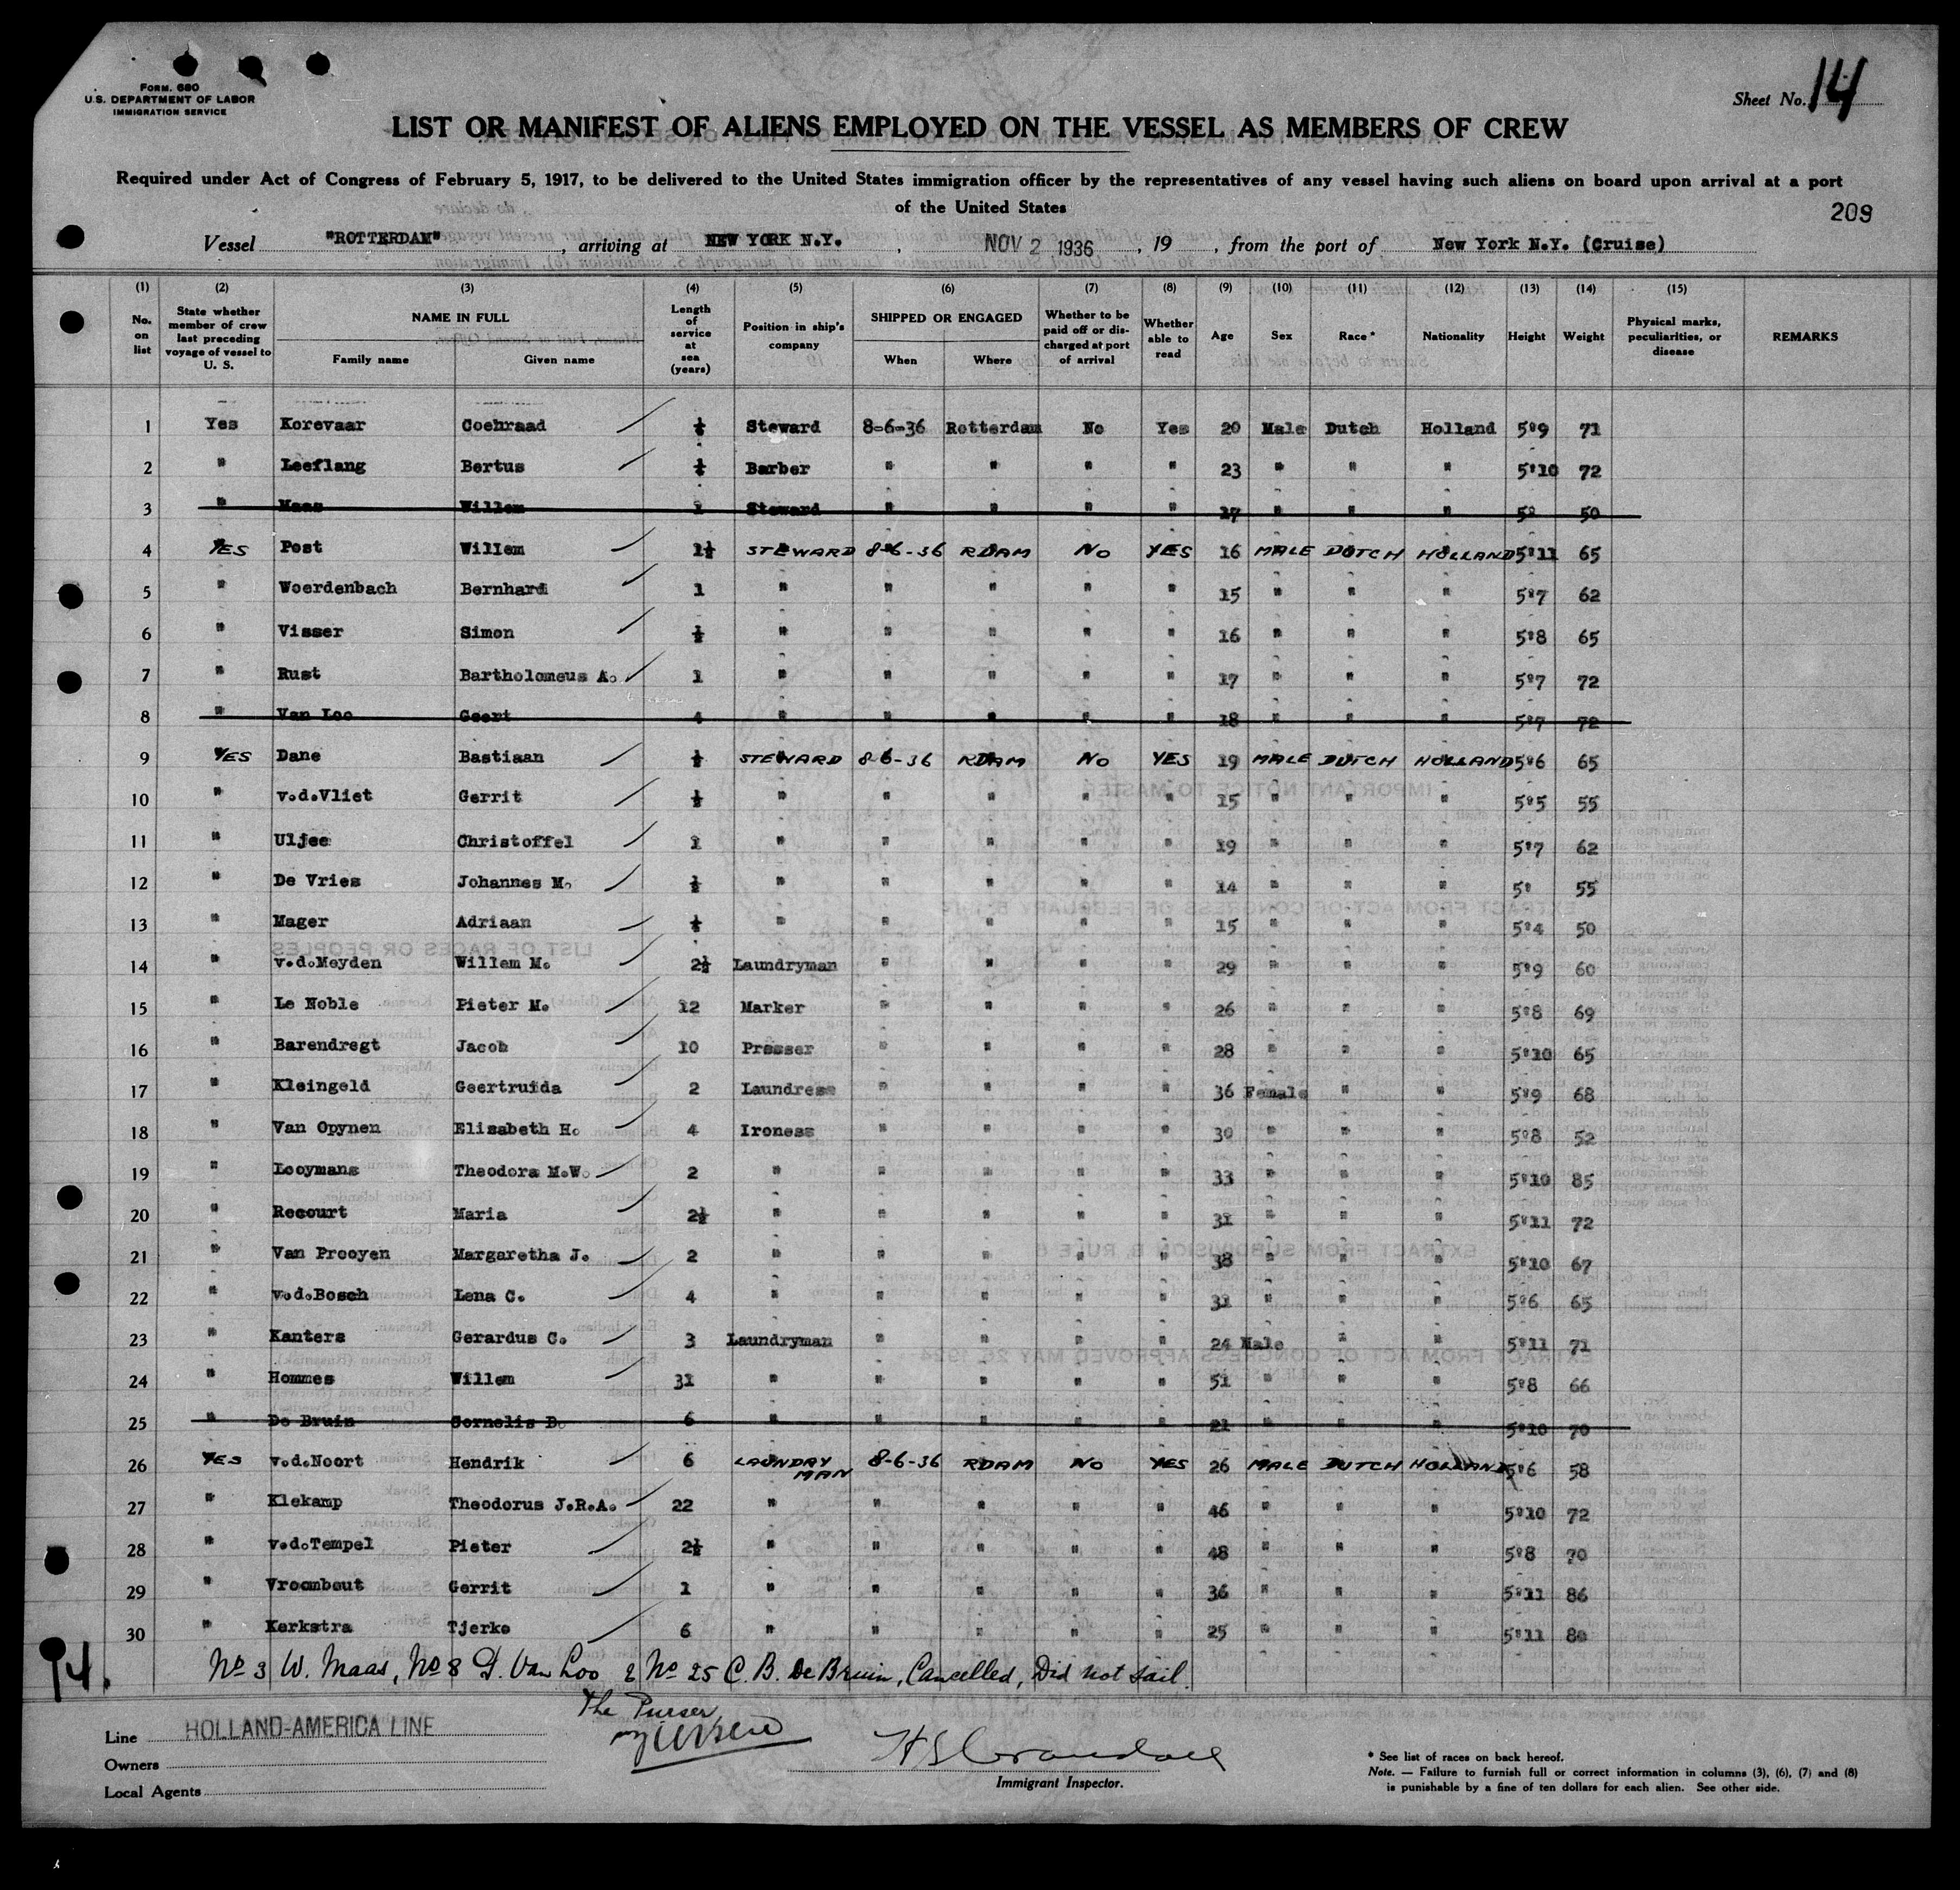 FORM. 680
U.S. DEPARTMENT OF LABOR
IMMIGRATION SERVICE
Sheet No. 14
LIST OR MANIFEST OF ALIENS EMPLOYED ON THE VESSEL AS MEMBERS OF CREW
Required under Act of Congress of February 5, 1917, to be delivered to the United States immigration officer by the representatives of any vessel having such aliens on board upon arrival at a port
of the United States
209
Vessel "ROTTERDAM", arriving at NEW YORK N.Y., NOV 2 1936, 19 , from the port of New York N.Y. (Cruise)
(1) (2) (3) (4) (5) (6) (7) (8) (9) (10) (11) (12) (13) (14) (15)
No. on list | State whether member of crew last preceding voyage of vessel to U. S. | NAME IN FULL Family name Given name | Length of service at sea (years) | Position in ship's company | SHIPPED OR ENGAGED When Where | Whether to be paid off or discharged at port of arrival | Whether able to read | Age | Sex | Race* | Nationality | Height | Weight | Physical marks, peculiarities, or disease | REMARKS
1 Yes Korevaar Coehraad Steward 8-6-36 Rotterdam No Yes 20 Male Dutch Holland 5'9 71
2 " Leeflang Bertus Barber " " " " 23 " " " 5'10 72
3 " Maas Willem Steward " " " " 17 " " " 5' 50
4 YES Post Willem 1½ STEWARD 8-6-36 RDAM NO YES 16 MALE DUTCH HOLLAND 5'11 65
5 " Woerdenbach Bernhard 1 " " " " " 15 " " " 5'7 62
6 " Visser Simon ½ " " " " " 16 " " " 5'8 65
7 " Rust Bartholomeus A. 1 " " " " " 17 " " " 5'7 72
8 " Van Loo Geert 4 " " " " " 18 " " " 5'7 72
9 YES Dane Bastiaan ½ STEWARD 8-6-36 RDAM NO YES 19 MALE DUTCH HOLLAND 5'6 65
10 " v.d.Vliet Gerrit ½ " " " " " 15 " " " 5'5 55
11 " Uljee Christoffel 1 " " " " " 19 " " " 5'7 62
12 " De Vries Johannes M. ½ " " " " " 14 " " " 5' 55
13 " Mager Adriaan ½ " " " " " 15 " " " 5'4 50
14 " v.d.Meyden Willem M. 2½ Laundryman " " " " 29 " " " 5'9 60
15 " Le Noble Pieter M. 12 Marker " " " " 26 " " " 5'8 69
16 " Barendregt Jacob 10 Presser " " " " 28 " " " 5'10 65
17 " Kleingeld Geertruida 2 Laundress " " " " 36 Female " " 5'9 68
18 " Van Opynen Elisabeth H. 4 Ironess " " " " 30 " " " 5'8 52
19 " Looymans Theodora M.W. 2 " " " " " 33 " " " 5'10 85
20 " Recourt Maria 2½ " " " " " 31 " " " 5'11 72
21 " Van Prooyen Margaretha J. 2 " " " " " 38 " " " 5'10 67
22 " v.d.Bosch Lena C. 4 " " " " " 31 " " " 5'6 65
23 " Kanters Gerardus C. 3 Laundryman " " " " 24 Male " " 5'11 71
24 " Hommes Willem 31 " " " " " 51 " " " 5'8 66
25 " De Bruin Cornelis B. 6 " " " " " 21 " " " 5'10 70
26 YES v.d.Noort Hendrik 6 LAUNDRY MAN 8-6-36 RDAM NO YES 26 MALE DUTCH HOLLAND 5'6 58
27 " Klekamp Theodorus J.R.A. 22 " " " " " 46 " " " 5'10 72
28 " v.d.Tempel Pieter 2½ " " " " " 48 " " " 5'8 70
29 " Vroombout Gerrit 1 " " " " " 36 " " " 5'11 86
30 " Kerkstra Tjerke 6 " " " " " 25 " " " 5'11 80
No 3 W. Maas, No 8 G. Van Loo & No 25 C. B. De Bruin, Cancelled, Did not sail.
14.
The Purser
Line HOLLAND-AMERICA LINE
Owners
Local Agents
Immigrant Inspector.
* See list of races on back hereof.
Note. — Failure to furnish full or correct information in columns (3), (6), (7) and (8)
is punishable by a fine of ten dollars for each alien. See other side.